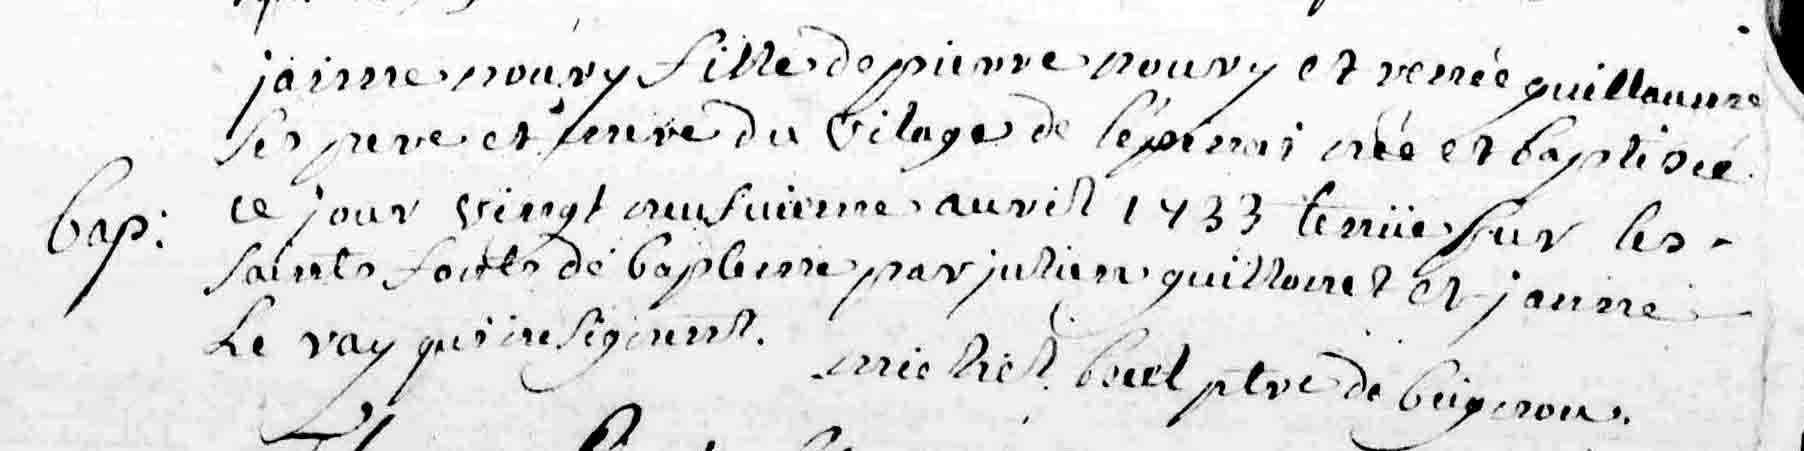 janne noury fille de pierre noury et renée guillaume
ses pere et mere du vilage de l'épinai née et baptisée
bap: ce jour vingt neufuieme auvril 1733 tenüe sur les
saints fonts de bapteme par julien guillouet et janne
Le ray qui ne signent.
michel ptre de beignon.